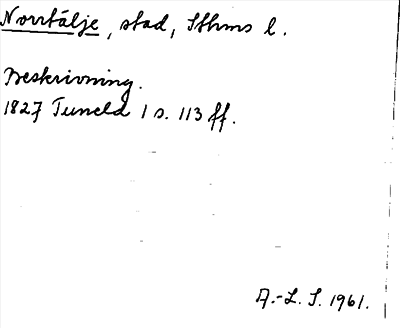 Norrtälje, stad, Sthms l.
Beskrivning.
1827 Tuneld 1 s. 113 ff.
A.-L. S. 1961.